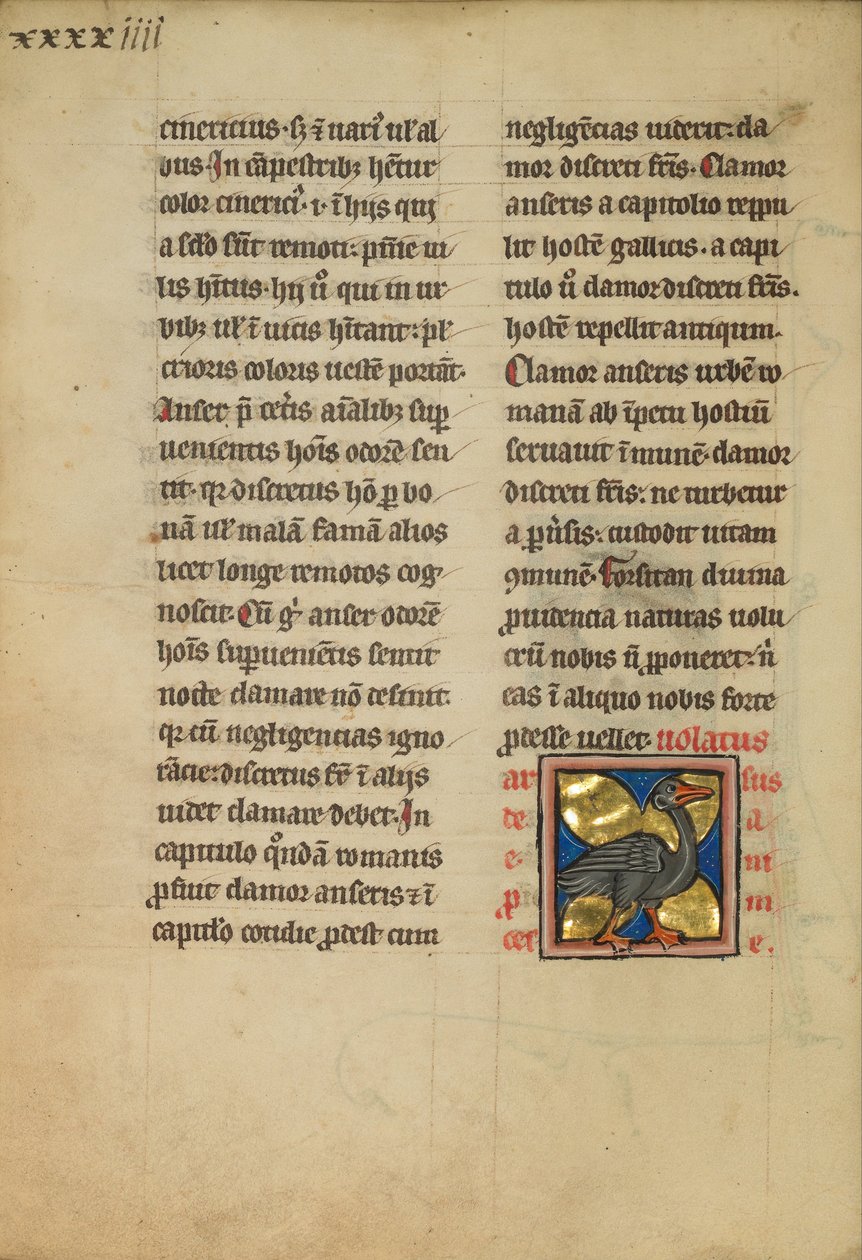 xxxxiiii
cinericius · sꝫ ⁊ uari᷒ ul᷑ al
bus · In cāpestribꝫ hētur
color cinerici᷒ · i · ī hijs qui
a sclo sūt remoti : pnīe ui
lis hītus · hij ū° qui in ur
bibꝫ ul᷑ ī uicis hītant : pl᷑
crioris coloris uestē portāt ·
Anser p̄ cet̄is aīalibꝫ suꝑ
uenientis hoīs odorē sen
tit · qꝛ discretus hō ꝑ bo
nā ul᷑ malā famā alios
licet longe remotos cog
noscit · Cū g° anser odorē
hoīs suꝑueniētis sentit
nocte clamare nō desinit :
qꝛ cū negligencias igno
rācie : discretus fr̄ ī alijs
uidet clamare debet · In
capitulo qn̄dā romanis
ꝓfuit clamor anseris ⁊ ī
capitlo cotidie ꝓdest cum
negligēcias uiderit : cla
mor discreti fr̄is · Clamor
anseris a capitolio reppu
lit hostē gallicis · a capi
tulo ū° clamor discreti fr̄is ·
hostē repellit antiqum ·
Clamor anseris urbē ro
manā ab īpetu hostiū
seruauit īmunē · clamor
discreti fr̄is : ne turbetur
a ꝑuˀsis : custodit uitam
ꝯmunē · Forsitan diuina
ꝓuidencia naturas uolu
crū nobis n̄ ꝓponeret : nˀ
eas ī aliquo nobis forte
ꝓdesse uellet · uolatus
ar sus
de a
e · ni
ꝓ m
cer e .